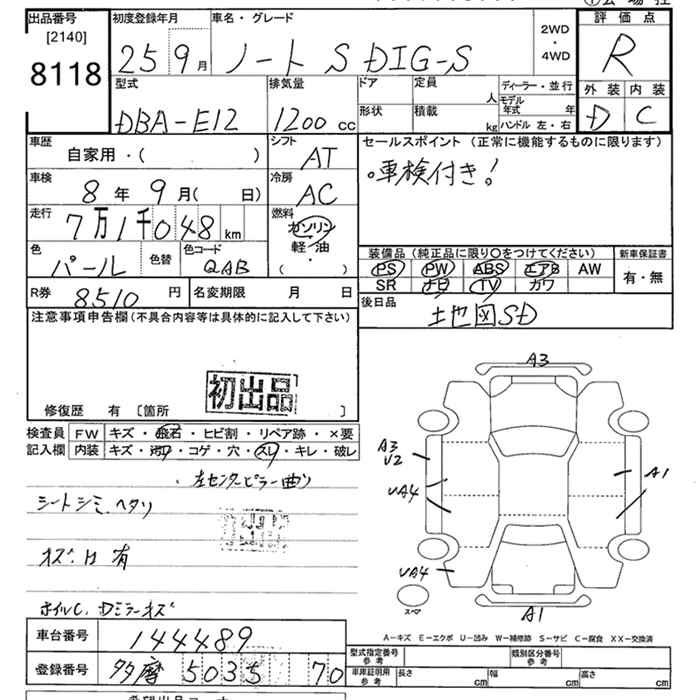 出品番号 初度登録年月 車名・グレード 2WD・4WD 評価点
[2140]
8118 25 9月 ノート S DIG-S R
型式 排気量 ドア 定員 人 ディーラー・並行 外装 内装
DBA-E12 1200cc 形状 積載 kg モデル年式 年 ハンドル 左・右 D C
車歴 シフト セールスポイント (正常に機能するものに限ります)
自家用・( ) AT 。車検付き!
車検 冷房
8年 9月( 日) AC
走行 燃料
7万1千048km ガソリン・軽・油・( )
色 色替 色コード 装備品 (純正品に限り〇をつけてください) 新車保証書
パール QAB PS PW ABS エアB AW 有・無
SR ナビ TV カワ
R券 8510円 名変期限 月 日 後日品
地図SD
注意事項申告欄(不具合内容等は具体的に記入して下さい)
初出品
修復歴 有 [箇所 ]
検査員 FW キズ・飛石・ヒビ割・リペア跡・×要
記入欄 内装 キズ・汚れ・コゲ・穴・スレ・キレ・破レ
左センターピラー曲り
シートシミ、ヘタリ
有
ホイルC、Dミラーキズ
A3
A3
U2
UA4
A1
UA4
スペア
A1
A−キズ E−エクボ U−凹み W−補修跡 S−サビ C−腐食 XX−交換済
車台番号 144489
登録番号 多摩 503 70
型式指定番号 参考 類別区分番号 参考
車庫証明用 参考 長さ cm 幅 cm 高さ cm